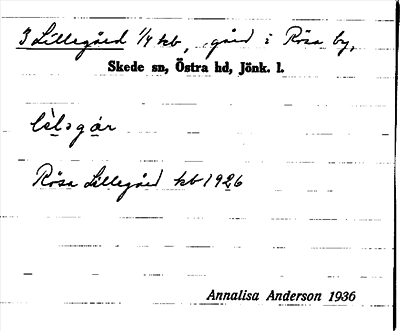 3 Lillegård 1/4 kb, gård i Rösa by,
Skede sn, Östra hd, Jönk. l.
lìlɘgar
Rösa Lillegård kb 1926
Annalisa Anderson 1936